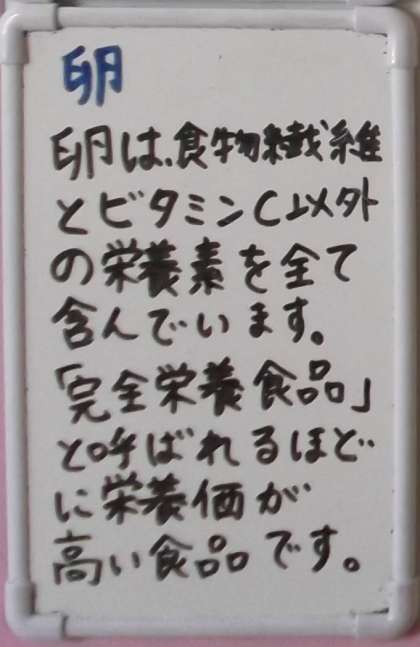 卵
卵は、食物繊維
とビタミンC以外
の栄養素を全て
含んでいます。
「完全栄養食品」
と呼ばれるほど
に栄養価が
高い食品です。